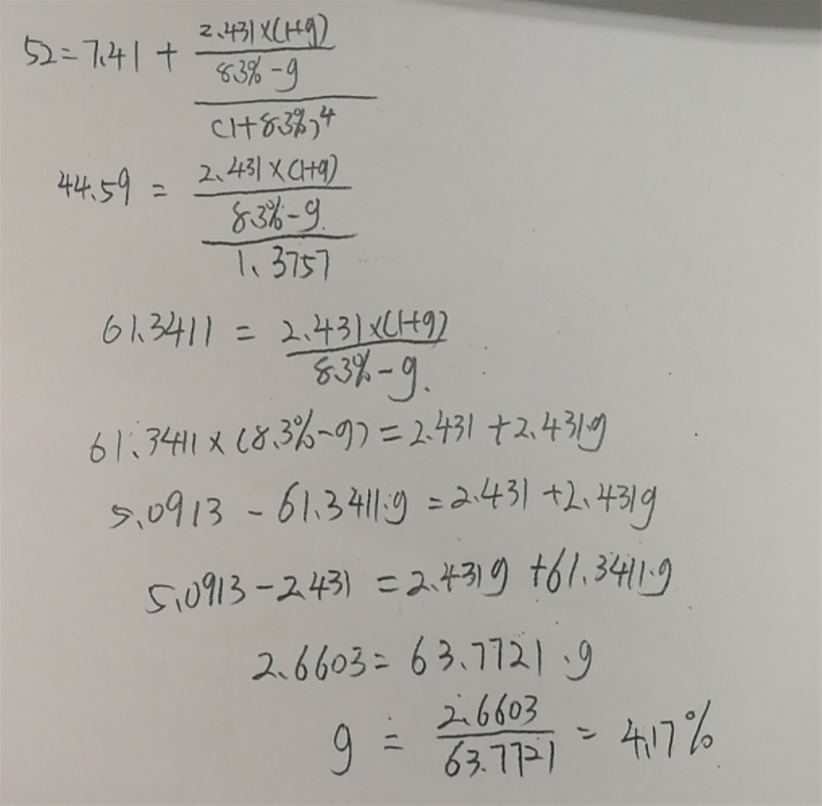 52 = 7.41 + \frac{\frac{2.431×(1+g)}{8.3%-g}}{(1+8.3%)^4}
44.59 = \frac{\frac{2.431×(1+g)}{8.3%-g}}{1.3757}
61.3411 = \frac{2.431×(1+g)}{8.3%-g}
61.3411×(8.3%-g) = 2.431+2.431·g
5.0913 - 61.3411·g = 2.431+2.431g
5.0913-2.431 = 2.431g+61.3411·g
2.6603 = 63.7721·g
g = \frac{2.6603}{63.7721} = 4.17%